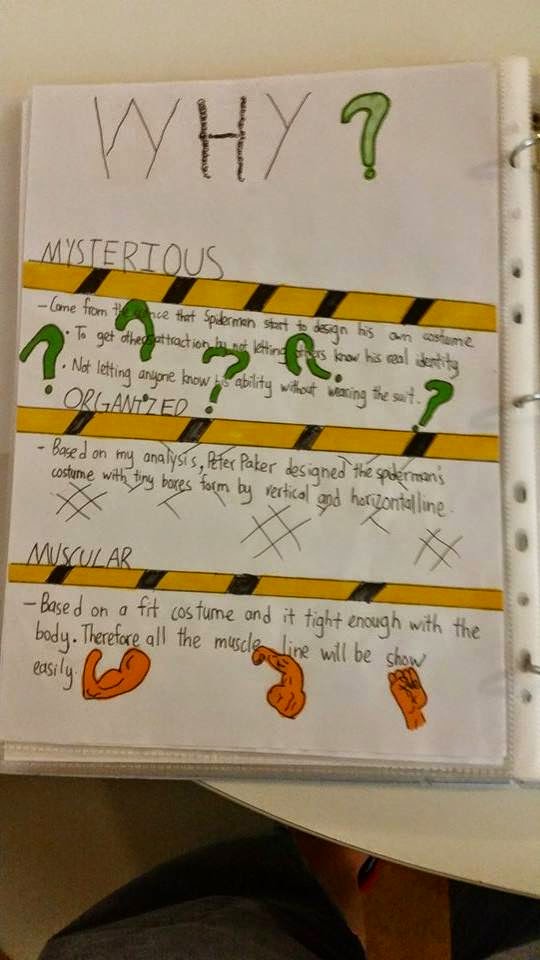 WHY?
MYSTERIOUS
- Come from the that Spiderman start to design his own costume
• To get others attraction by not letting others know his real identity
• Not letting anyone know his ability without wearing the suit.
ORGANIZED
- Based on my analysis, Peter Paker designed the spiderman's
costume with tiny boxes form by vertical and horizontal line.
MUSCULAR
- Based on a fit costume and it tight enough with the
body. Therefore all the muscle line will be show
easily.